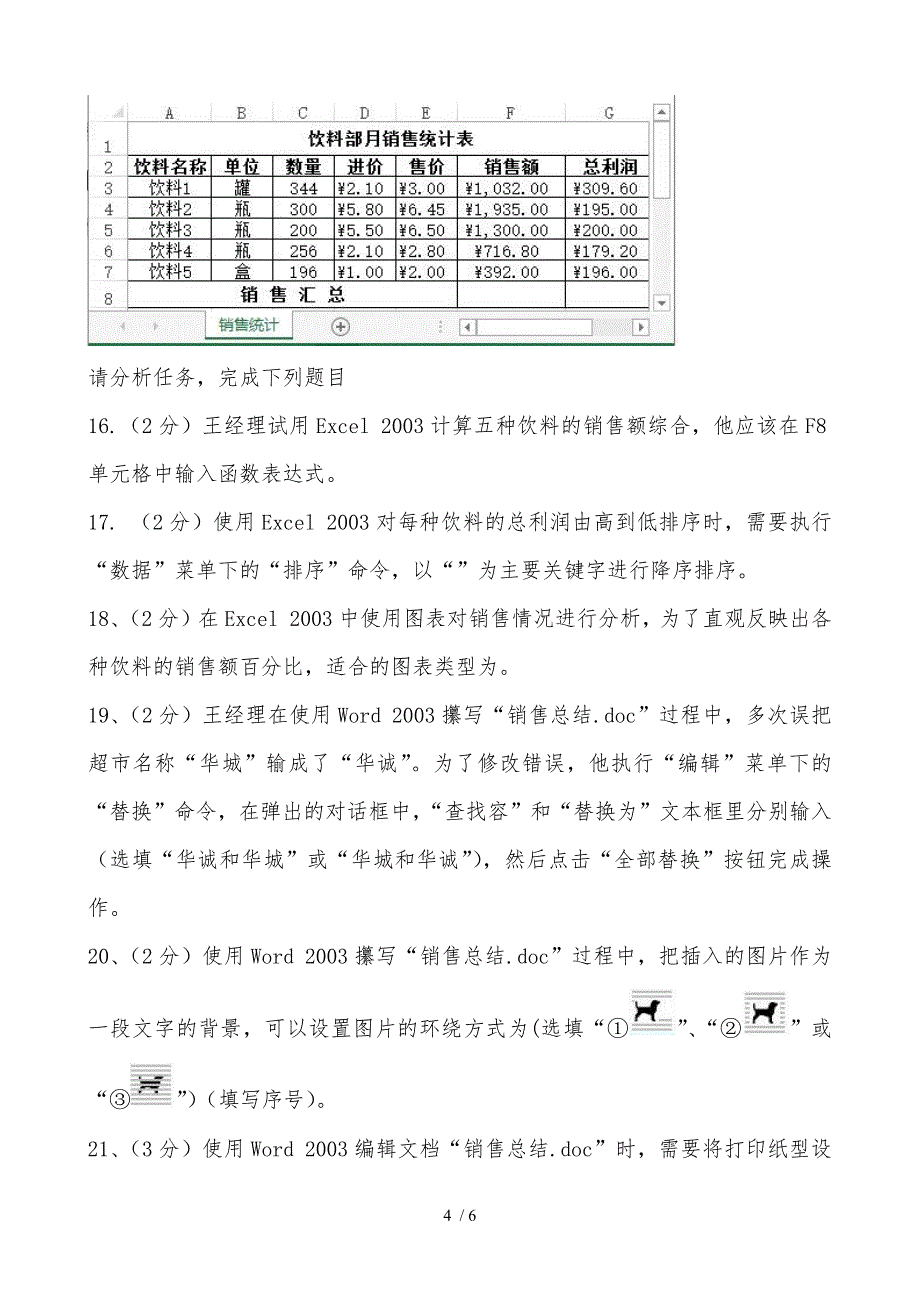 A B C D E F G
1 饮料部月销售统计表
2 饮料名称 单位 数量 进价 售价 销售额 总利润
3 饮料1 罐 344 ¥2.10 ¥3.00 ¥1,032.00 ¥309.60
4 饮料2 瓶 300 ¥5.80 ¥6.45 ¥1,935.00 ¥195.00
5 饮料3 瓶 200 ¥5.50 ¥6.50 ¥1,300.00 ¥200.00
6 饮料4 瓶 256 ¥2.10 ¥2.80 ¥716.80 ¥179.20
7 饮料5 盒 196 ¥1.00 ¥2.00 ¥392.00 ¥196.00
8 销 售 汇 总
销售统计
请分析任务，完成下列题目
16.（2分）王经理试用Excel 2003计算五种饮料的销售额综合，他应该在F8
单元格中输入函数表达式。
17. （2分）使用Excel 2003对每种饮料的总利润由高到低排序时，需要执行
“数据”菜单下的“排序”命令，以“”为主要关键字进行降序排序。
18、（2分）在Excel 2003中使用图表对销售情况进行分析，为了直观反映出各
种饮料的销售额百分比，适合的图表类型为。
19、（2分）王经理在使用Word 2003攥写“销售总结.doc”过程中，多次误把
超市名称“华城”输成了“华诚”。为了修改错误，他执行“编辑”菜单下的
“替换”命令，在弹出的对话框中，“查找容”和“替换为”文本框里分别输入
（选填“华诚和华城”或“华城和华诚”），然后点击“全部替换”按钮完成操
作。
20、（2分）使用Word 2003攥写“销售总结.doc”过程中，把插入的图片作为
一段文字的背景，可以设置图片的环绕方式为(选填“①”、“②”或
“③”)（填写序号）。
21、（3分）使用Word 2003编辑文档“销售总结.doc”时，需要将打印纸型设
4 / 6